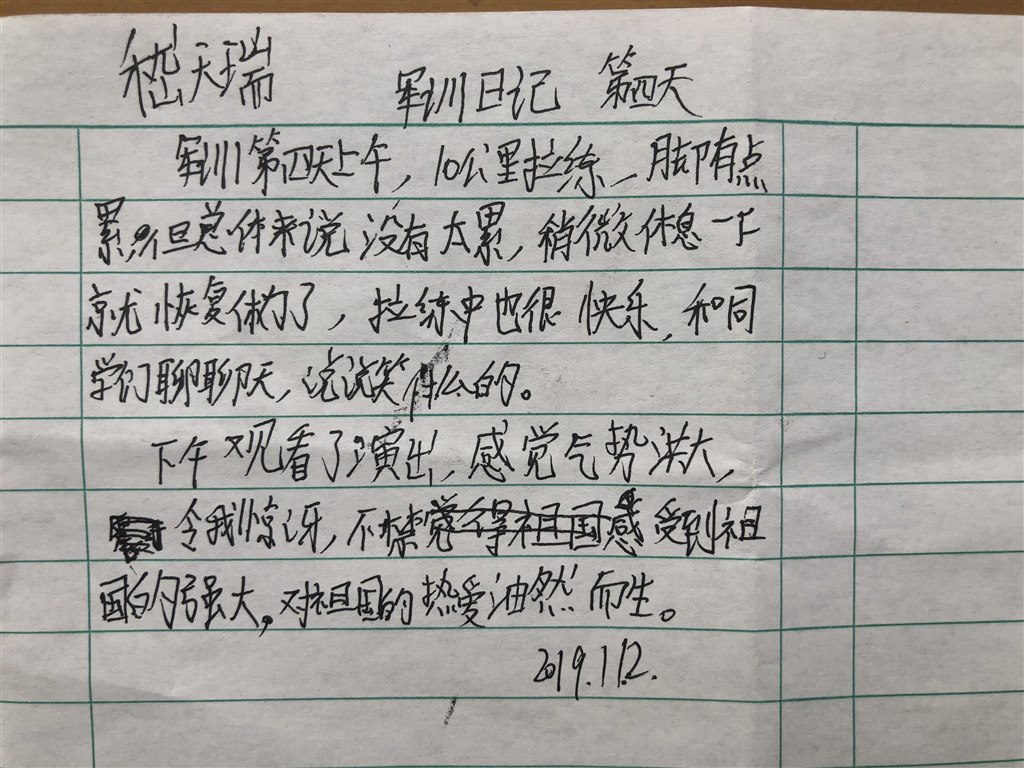 嵇天瑞 军训日记 第四天
军训第四天上午,10公里拉练,脚有点
累,但总体来说没有太累,稍微休息一下
就恢复体力了,拉练中也很快乐,和同
学们聊聊天,说说笑什么的。
下午观看了演出,感觉气势洪大,
令我惊讶,不禁感受到祖
国的强大,对祖国的热爱油然而生。
2019.11.2.